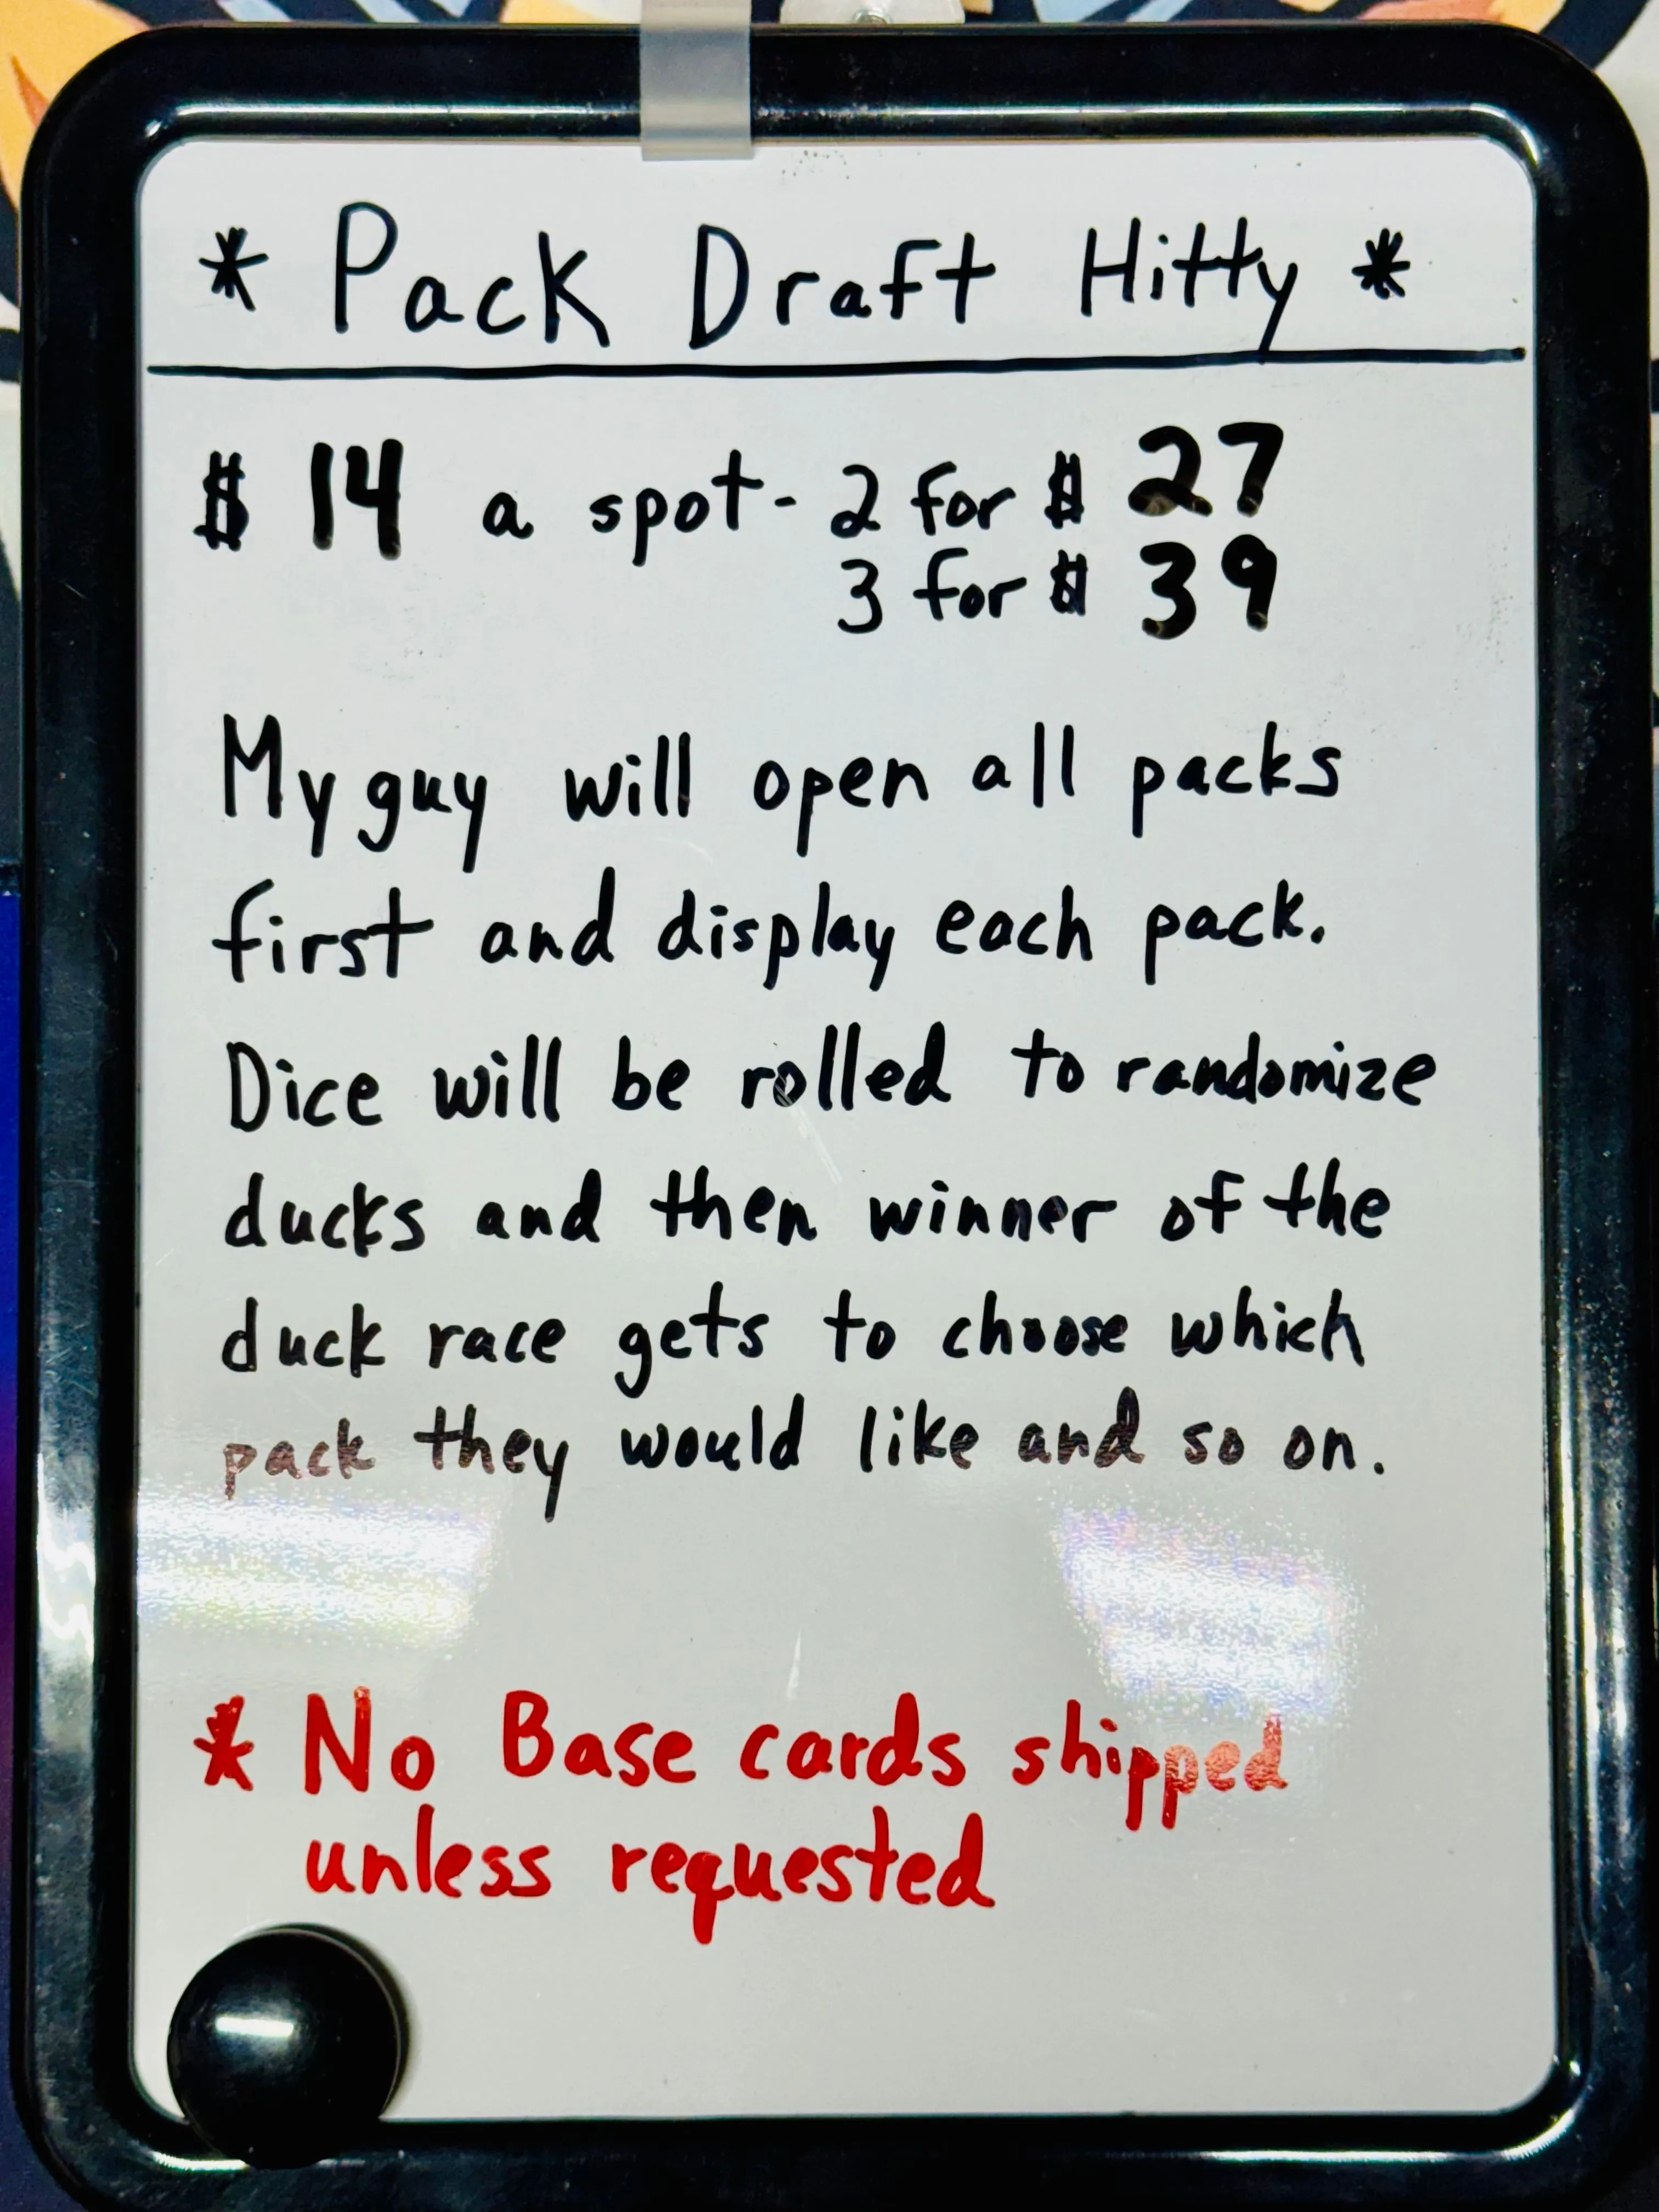 * Pack Draft Hitty *
$ 14 a spot - 2 for $ 27
3 for $ 39
My guy will open all packs
first and display each pack.
Dice will be rolled to randomize
ducks and then winner of the
duck race gets to choose which
pack they would like and so on.
* No Base cards shipped
unless requested